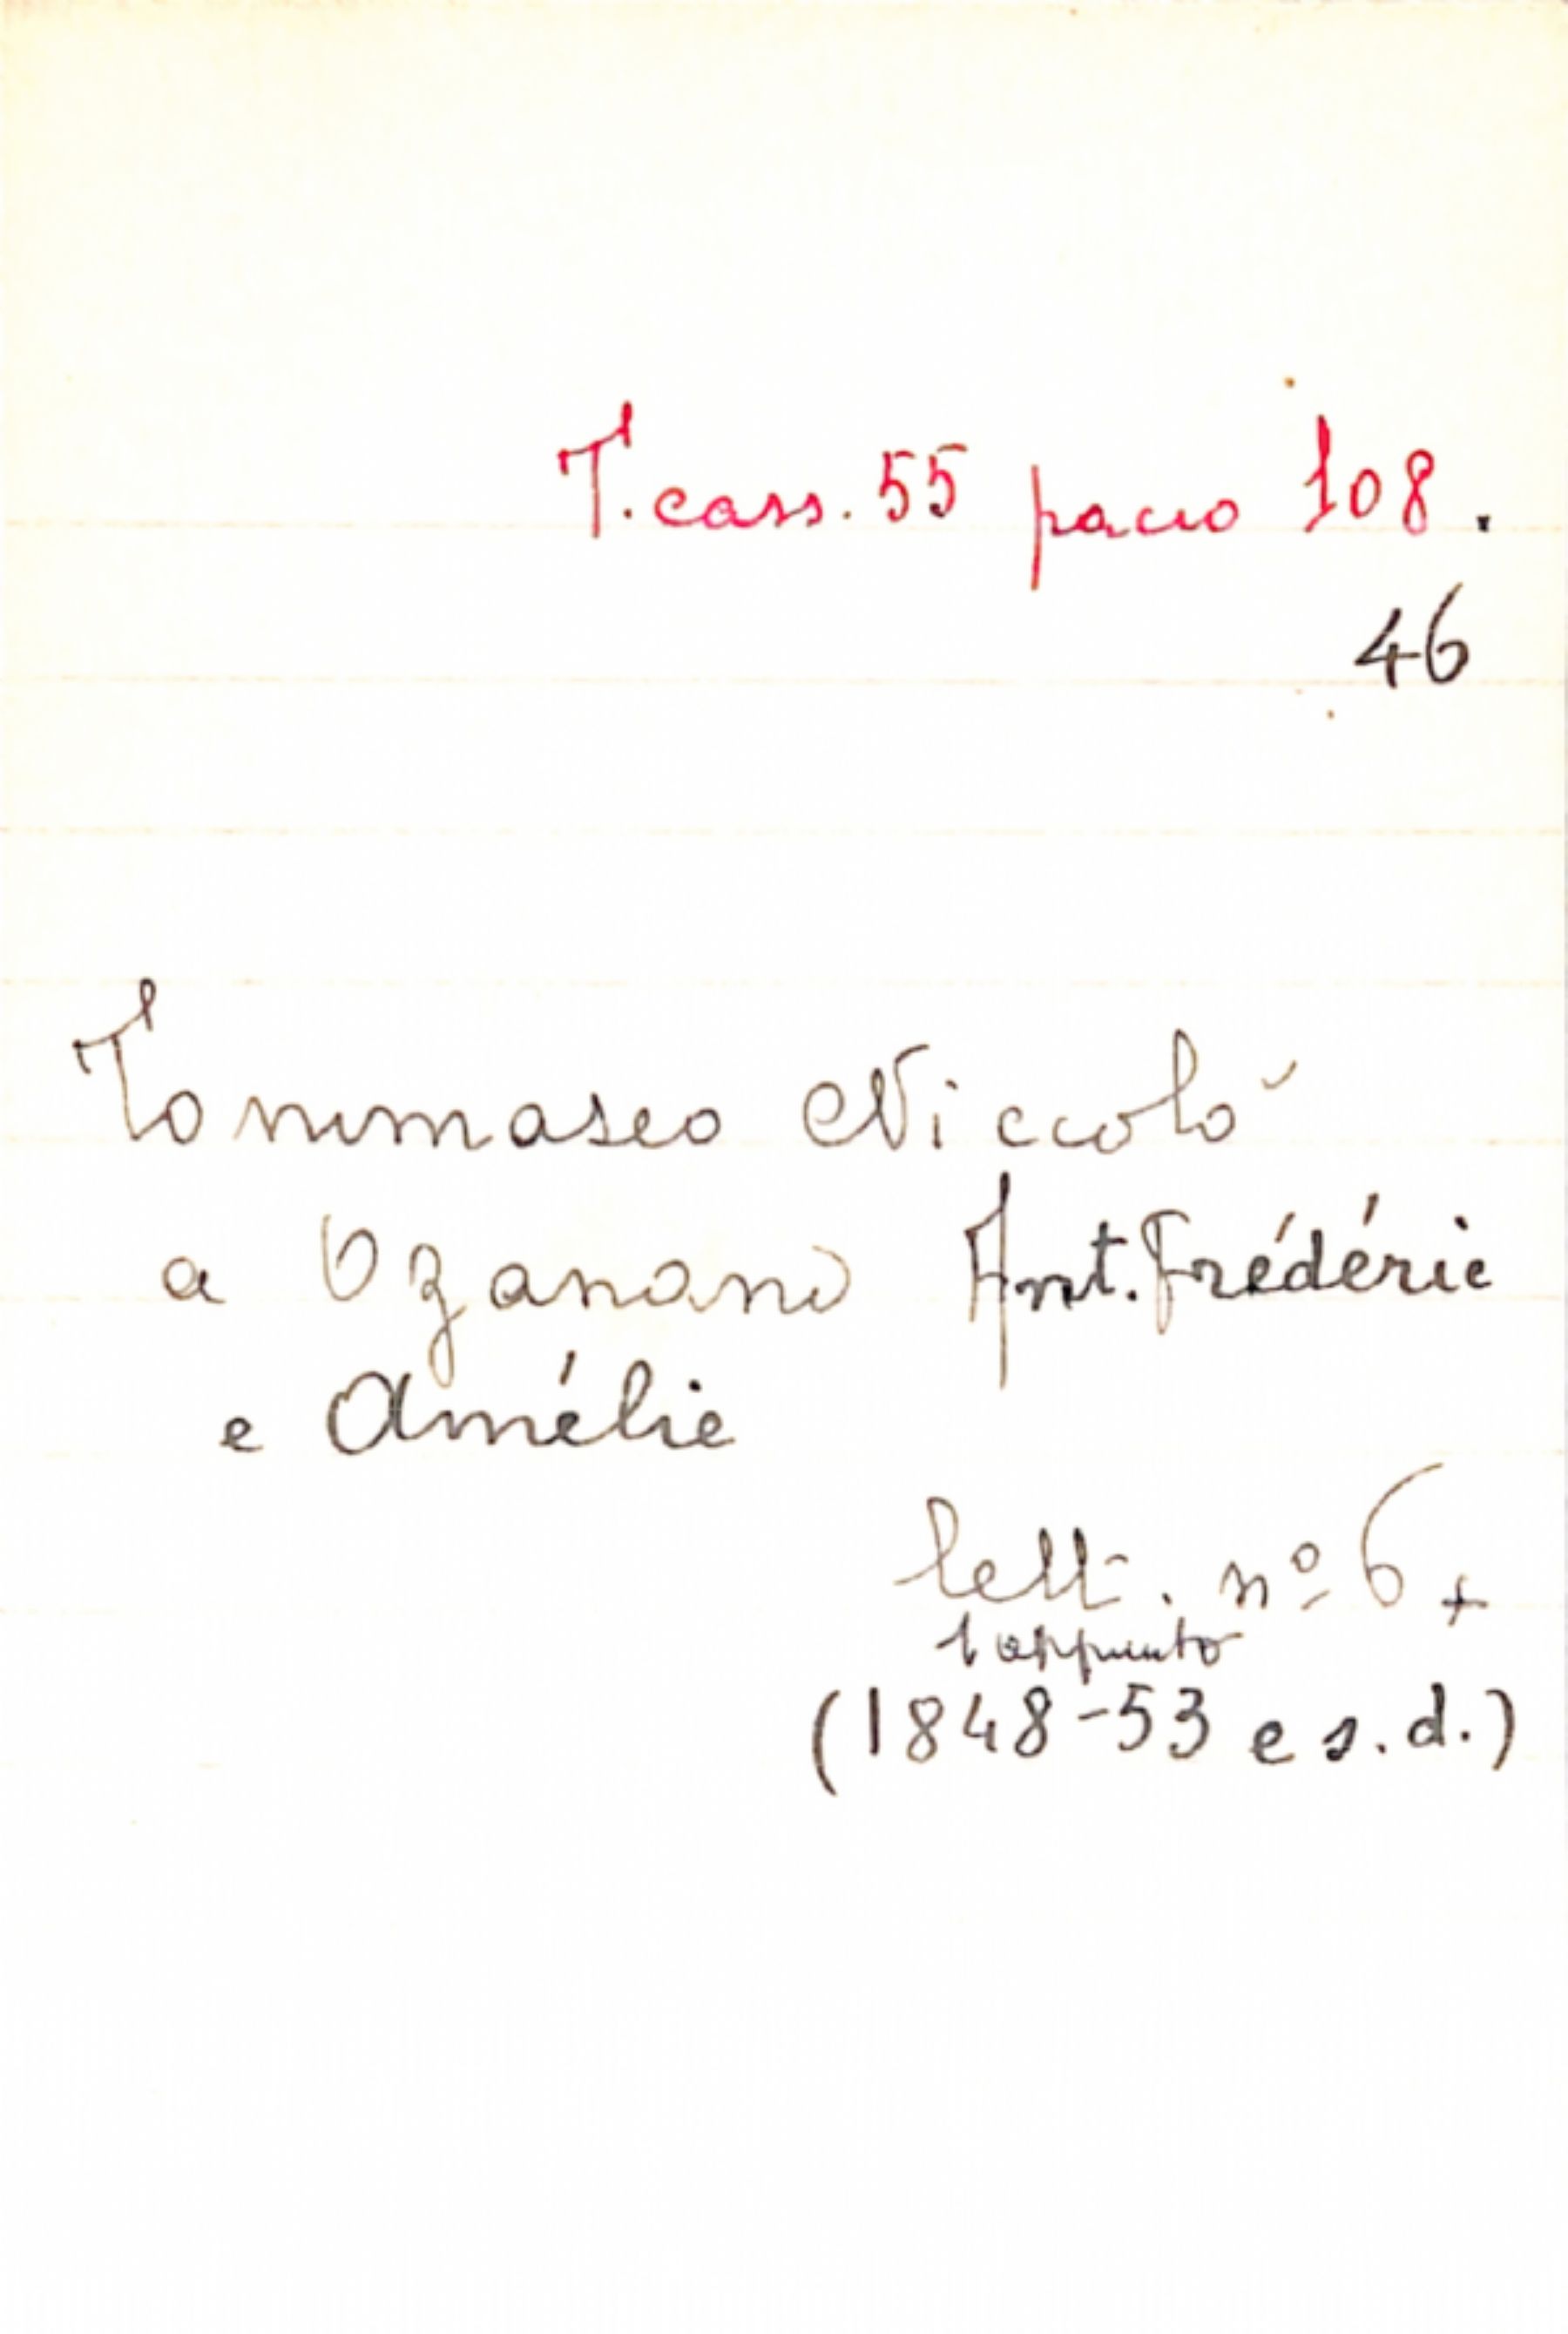 T. cass. 55 pacco 108.
46
Tommaseo Niccolò
a Ozanam Ant. Frédéric
e Amélie
lett. nº 6 +
1 appunto
(1848-53 e s.d.)